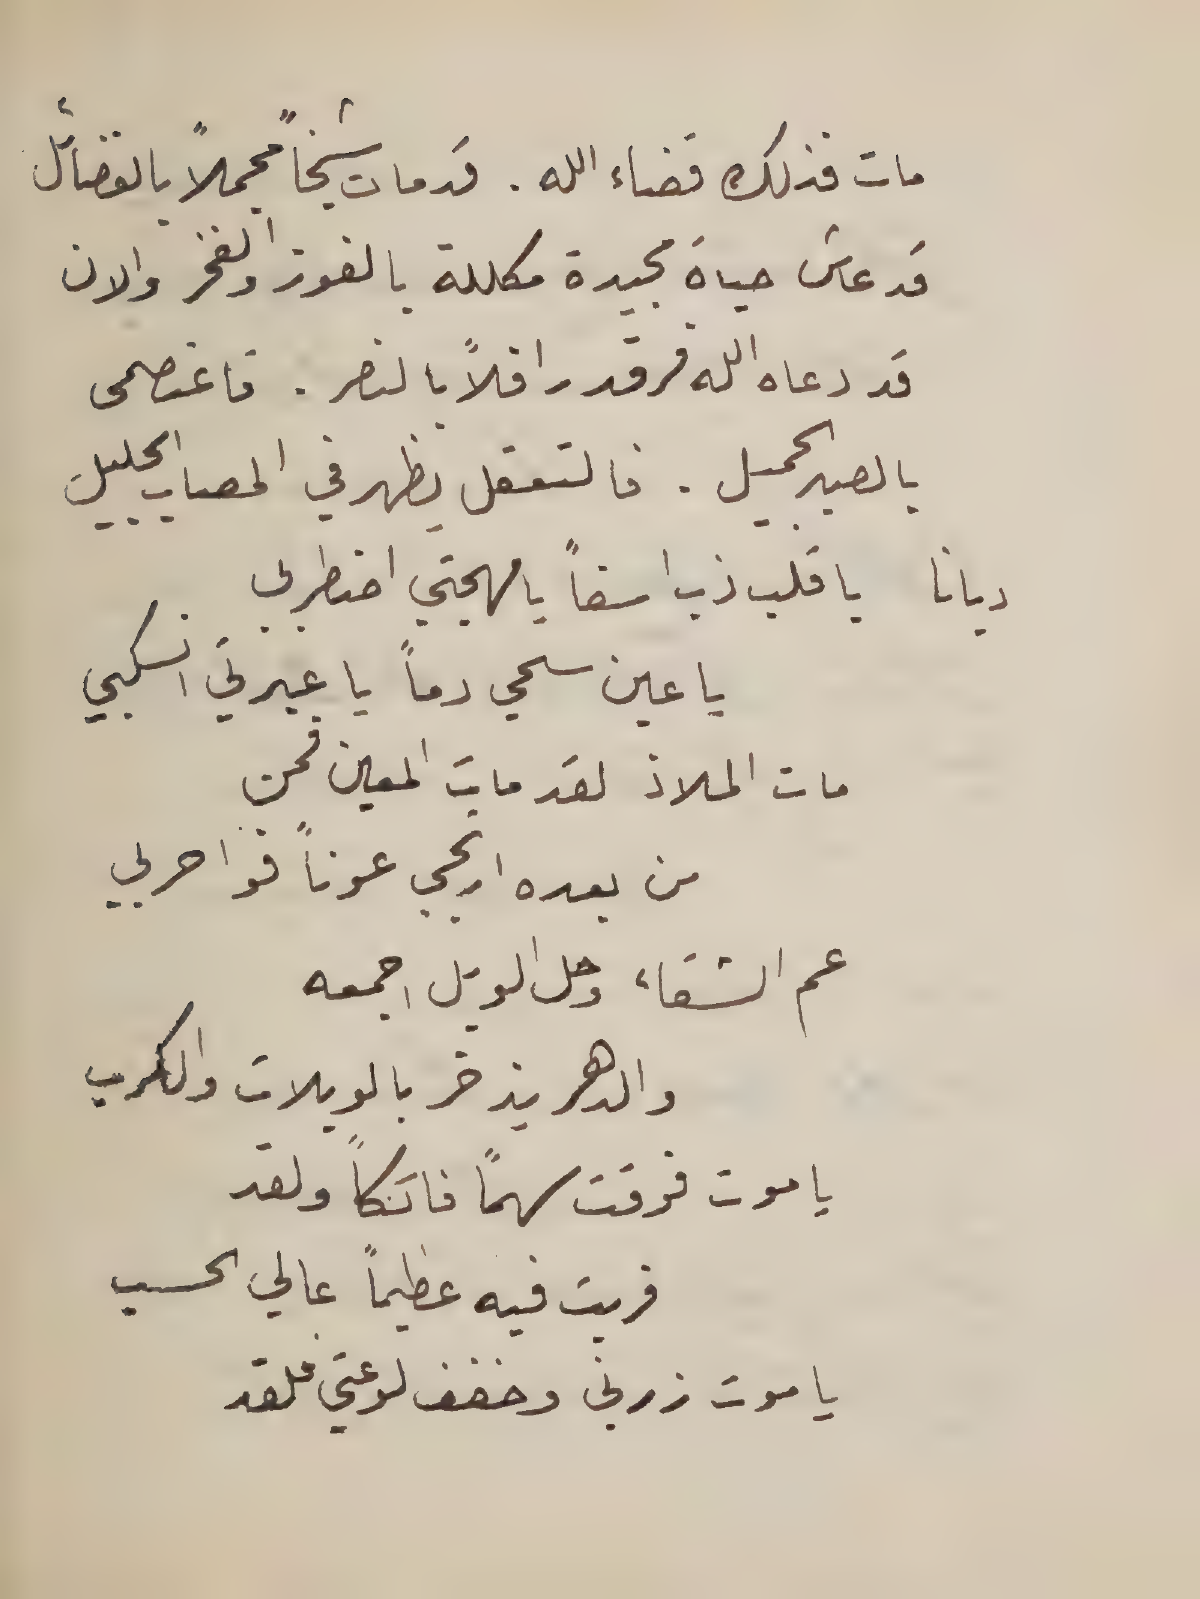 مات فذلك قضاء الله . قد مات شيخاً مجملاً بالفضائل
قد عاش حياة مجيدة مكللة بالفوز والفخر والان
قد دعاه الله فرقد رافلاً بالنصر . فاعتصمى
بالصبر الجميل . فالتعقل يظهر في المصاب الجليل
ديانا يا قلب ذب اسفاً يا مهجتي اضطربي
يا عين سحي دماً يا عبرتي انسكبي
مات الملاذ لقد مات المعين فمن
من بعده ارتجي عوناً فوا حربي
عم الشقاء وحل الويل اجمعه
والدهر يذخر بالويلات والكرب
يا موت فوقت سهماً فاتكاً ولقد
فريت فيه عظيماً عالي الحسب
يا موت زرني وخفف لوعتي فلقد